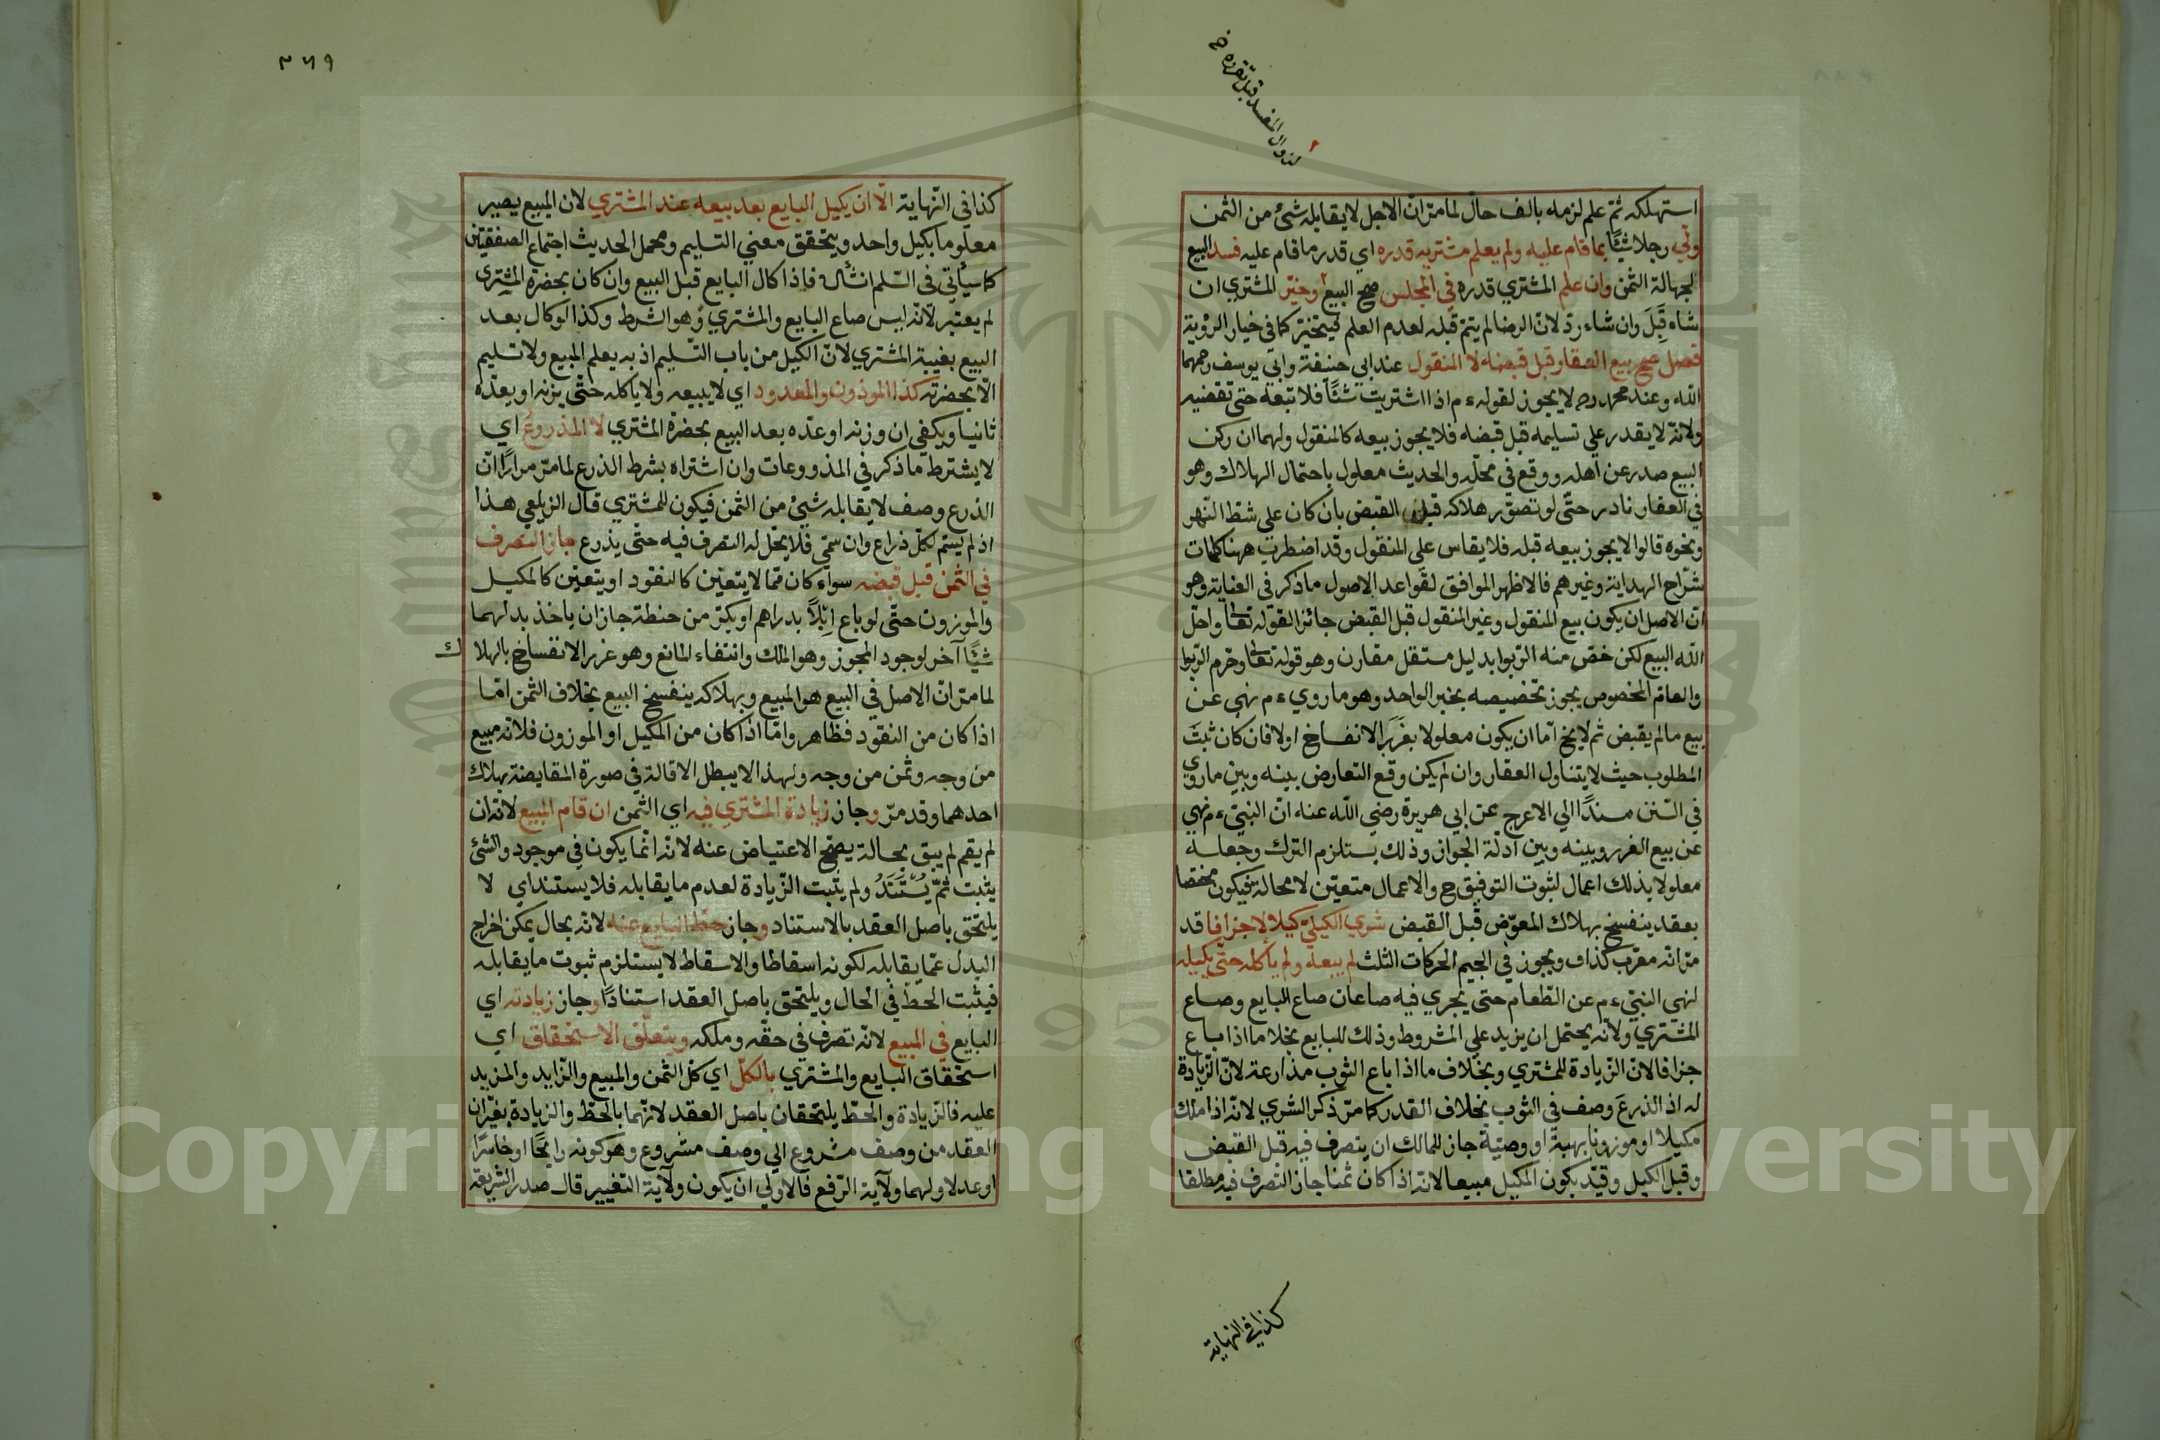 لزوال المفسد قبل تقرره خ
استهلكه ثم علم لزمه بالف حال لما مر ان الاجل لا يقابله شئ من الثمن
ولي رجلا شيئا بما قام عليه ولم يعلم مشتريه قدره اي قدر ما قام عليه فسد البيع
لجهالة الثمن وان علم المشتري قدره في المجلس صح البيع وخير المشتري ان
شاء قبل وان شاء رد لان الرضا لم يتم قبله لعدم العلم فيتخير كما في خيار الرؤية
فصل صح بيع العقار قبل قبضه لا المنقول عند ابي حنيفة وابي يوسف رحمهما
الله وعند محمد رح لا يجوز لقوله ءم اذا اشتريت شيئا فلا تبعه حتى تقضيه
ولانه لا يقدر على تسليمه قبل قبضه فلا يجوز بيعه كالمنقول ولهما ان ركن
البيع صدر عن اهله ووقع في محله والحديث معلول باحتمال الهلاك وهو
في العقار نادر حتى لو تصور هلاكه قبل القبض بان كان على شط النهر
ونحوه قالوا لا يجوز بيعه قبله فلا يقاس على المنقول وقد اضطرب ههنا كلمات
شراح الهداية وغيرهم فالاظهر الموافق لقواعد الاصول ما ذكر في العناية وهو
ان الاصل ان يكون بيع المنقول وغير المنقول قبل القبض جائزا لقوله تعا واحل
الله البيع لكن خص منه الربوا بدليل مستقل مقارن وهو قوله تعا وحرم الربوا
والعام المخصوص يجوز تخصيصه بخبر الواحد وهو ما روي ءم نهي عن
بيع ما لم يقبض ثم لا يخ اما ان يكون معلولا بغرر الانفساخ او لا فان كان ثبت
المطلوب حيث لا يتناول العقار وان لم يكن وقع التعارض بينه وبين ما روي
في السنن مسندا الي الاعرج عن ابي هريرة رضي الله عنه ان النبي ءم نهي
عن بيع الغرر وبينه وبين ادلة الجواز وذلك يستلزم الترك وجعله
معلولا بذلك اعمال لثبوت التوفيق ح والاعمال متعين لا محالة فيكون مختصا
بعقد ينفسخ بهلاك المعوض قبل القبض شري الكيلي كيلا لا جزافا قد
مر انه معرب كذاف ويجوز في الجيم الحركات الثلث لم يبعه ولم يأكله حتى يكيله
لنهي النبي ءم عن الطعام حتى يجري فيه صاعان صاع البايع وصاع
المشتري ولانه يحتمل ان يزيد على المشروط وذلك للبايع بخلا ما اذا باع
جزافا لان الزيادة للمشتري وبخلاف ما اذا باع الثوب مذارعة لان الزيادة
له اذ الذرع وصف في الثوب بخلاف القدر كما مر ذكر الشري لانه اذا ملك
مكيلا او موزونا بهبة او وصية جاز للمالك ان يتصرف فيه قبل القبض
وقبل الكيل وقيد بكون المكيل مبيعا لانه اذا كان ثمنا جاز التصرف فيه مطلقا
كذا في النهاية
٣٦٩
كذا في النهاية الا ان يكيل البايع بعد بيعه عند المشتري لان المبيع يصير
معلوما بكيل واحد ويتحقق معني التسليم ومحمل الحديث اجتماع الصفقتين
كما سيأتي في السلم انشاالله فاذا كال البايع قبل البيع وان كان بحضرة المشتري
لم يعتبر لانه ليس صاع البايع والمشتري وهو الشرط وكذا لو كال بعد
البيع بغيبة المشتري لان الكيل من باب التسليم اذ به يعلم المبيع ولا تسليم
الا بحضرته كذا الموزون والمعدود اي لا يبيعه ولا يأكله حتى يزنه او يعده
ثانيا ويكفي ان وزنه او عده بعد البيع بحضرة المشتري لا المذروع اي
لا يشترط ما ذكر في المذروعات وان اشتراه بشرط الذرع لما مر مرارا ان
الذرع وصف لا يقابله شئ من الثمن فيكون للمشتري قال الزيلعي هذا
اذ لم يسم لكل ذراع وان سمى فلا يحل له التصرف فيه حتى يذرع جاز التصرف
في الثمن قبل قبضه سواء كان مما لا يتعين كالنقود او يتعين كالمكيل
والموزون حتى لو باع ابلا بدراهم او بكر من حنطة جاز ان ياخذ بدلهما
شيئا آخر لوجود المجوز وهو الملك وانتفاء المانع وهو غرر الانفساخ بالهلا ك
لما مر ان الاصل في البيع هو المبيع وبهلاكه ينفسخ البيع بخلاف الثمن اما
اذا كان من النقود فظاهر واما اذا كان من المكيل او الموزون فلانه مبيع
من وجه وثمن من وجه ولهذا لا يبطل الاقالة في صورة المقايضة بهلاك
احدهما وقد مر وجاز زيادة المشتري فيه اي الثمن ان قام المبيع لانه ان
لم يقم لم يبق بحالة يصح الاعتياض عنه لانه انما يكون في موجود والشئ
يثبت ثم يستند ولم يثبت الزيادة لعدم ما يقابله فلا يستند اي لا
يلتحق باصل العقد بالاستناد وجاز حط البايع عنه لانه بحال يمكن اخراج
البدل عما يقابله لكونه اسقاطا والاسقاط لا يستلزم ثبوت ما يقابله
فيثبت الحط في الحال ويلتحق باصل العقد استنادا وجاز زيادته اي
البايع في المبيع لانه تصرف في حقه وملكه ويتعلق الاستحقاق اي
استحقاق البايع والمشتري بالكل اي كل الثمن والمبيع والزايد والمزيد
عليه فالزيادة والحط يلتحقان باصل العقد لانهما بالحط والزيادة يغيران
العقد من وصف مشروع الي وصف مشروع وهو كونه رابحا او خاسرا
او عدلا ولهما ولاية الرفع فالاولي ان يكون ولاية التغيير قال صدر الشريعة
Copyright © King Saud University